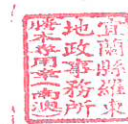 宜蘭縣羅東
地政事務所
謄本專用章南澳